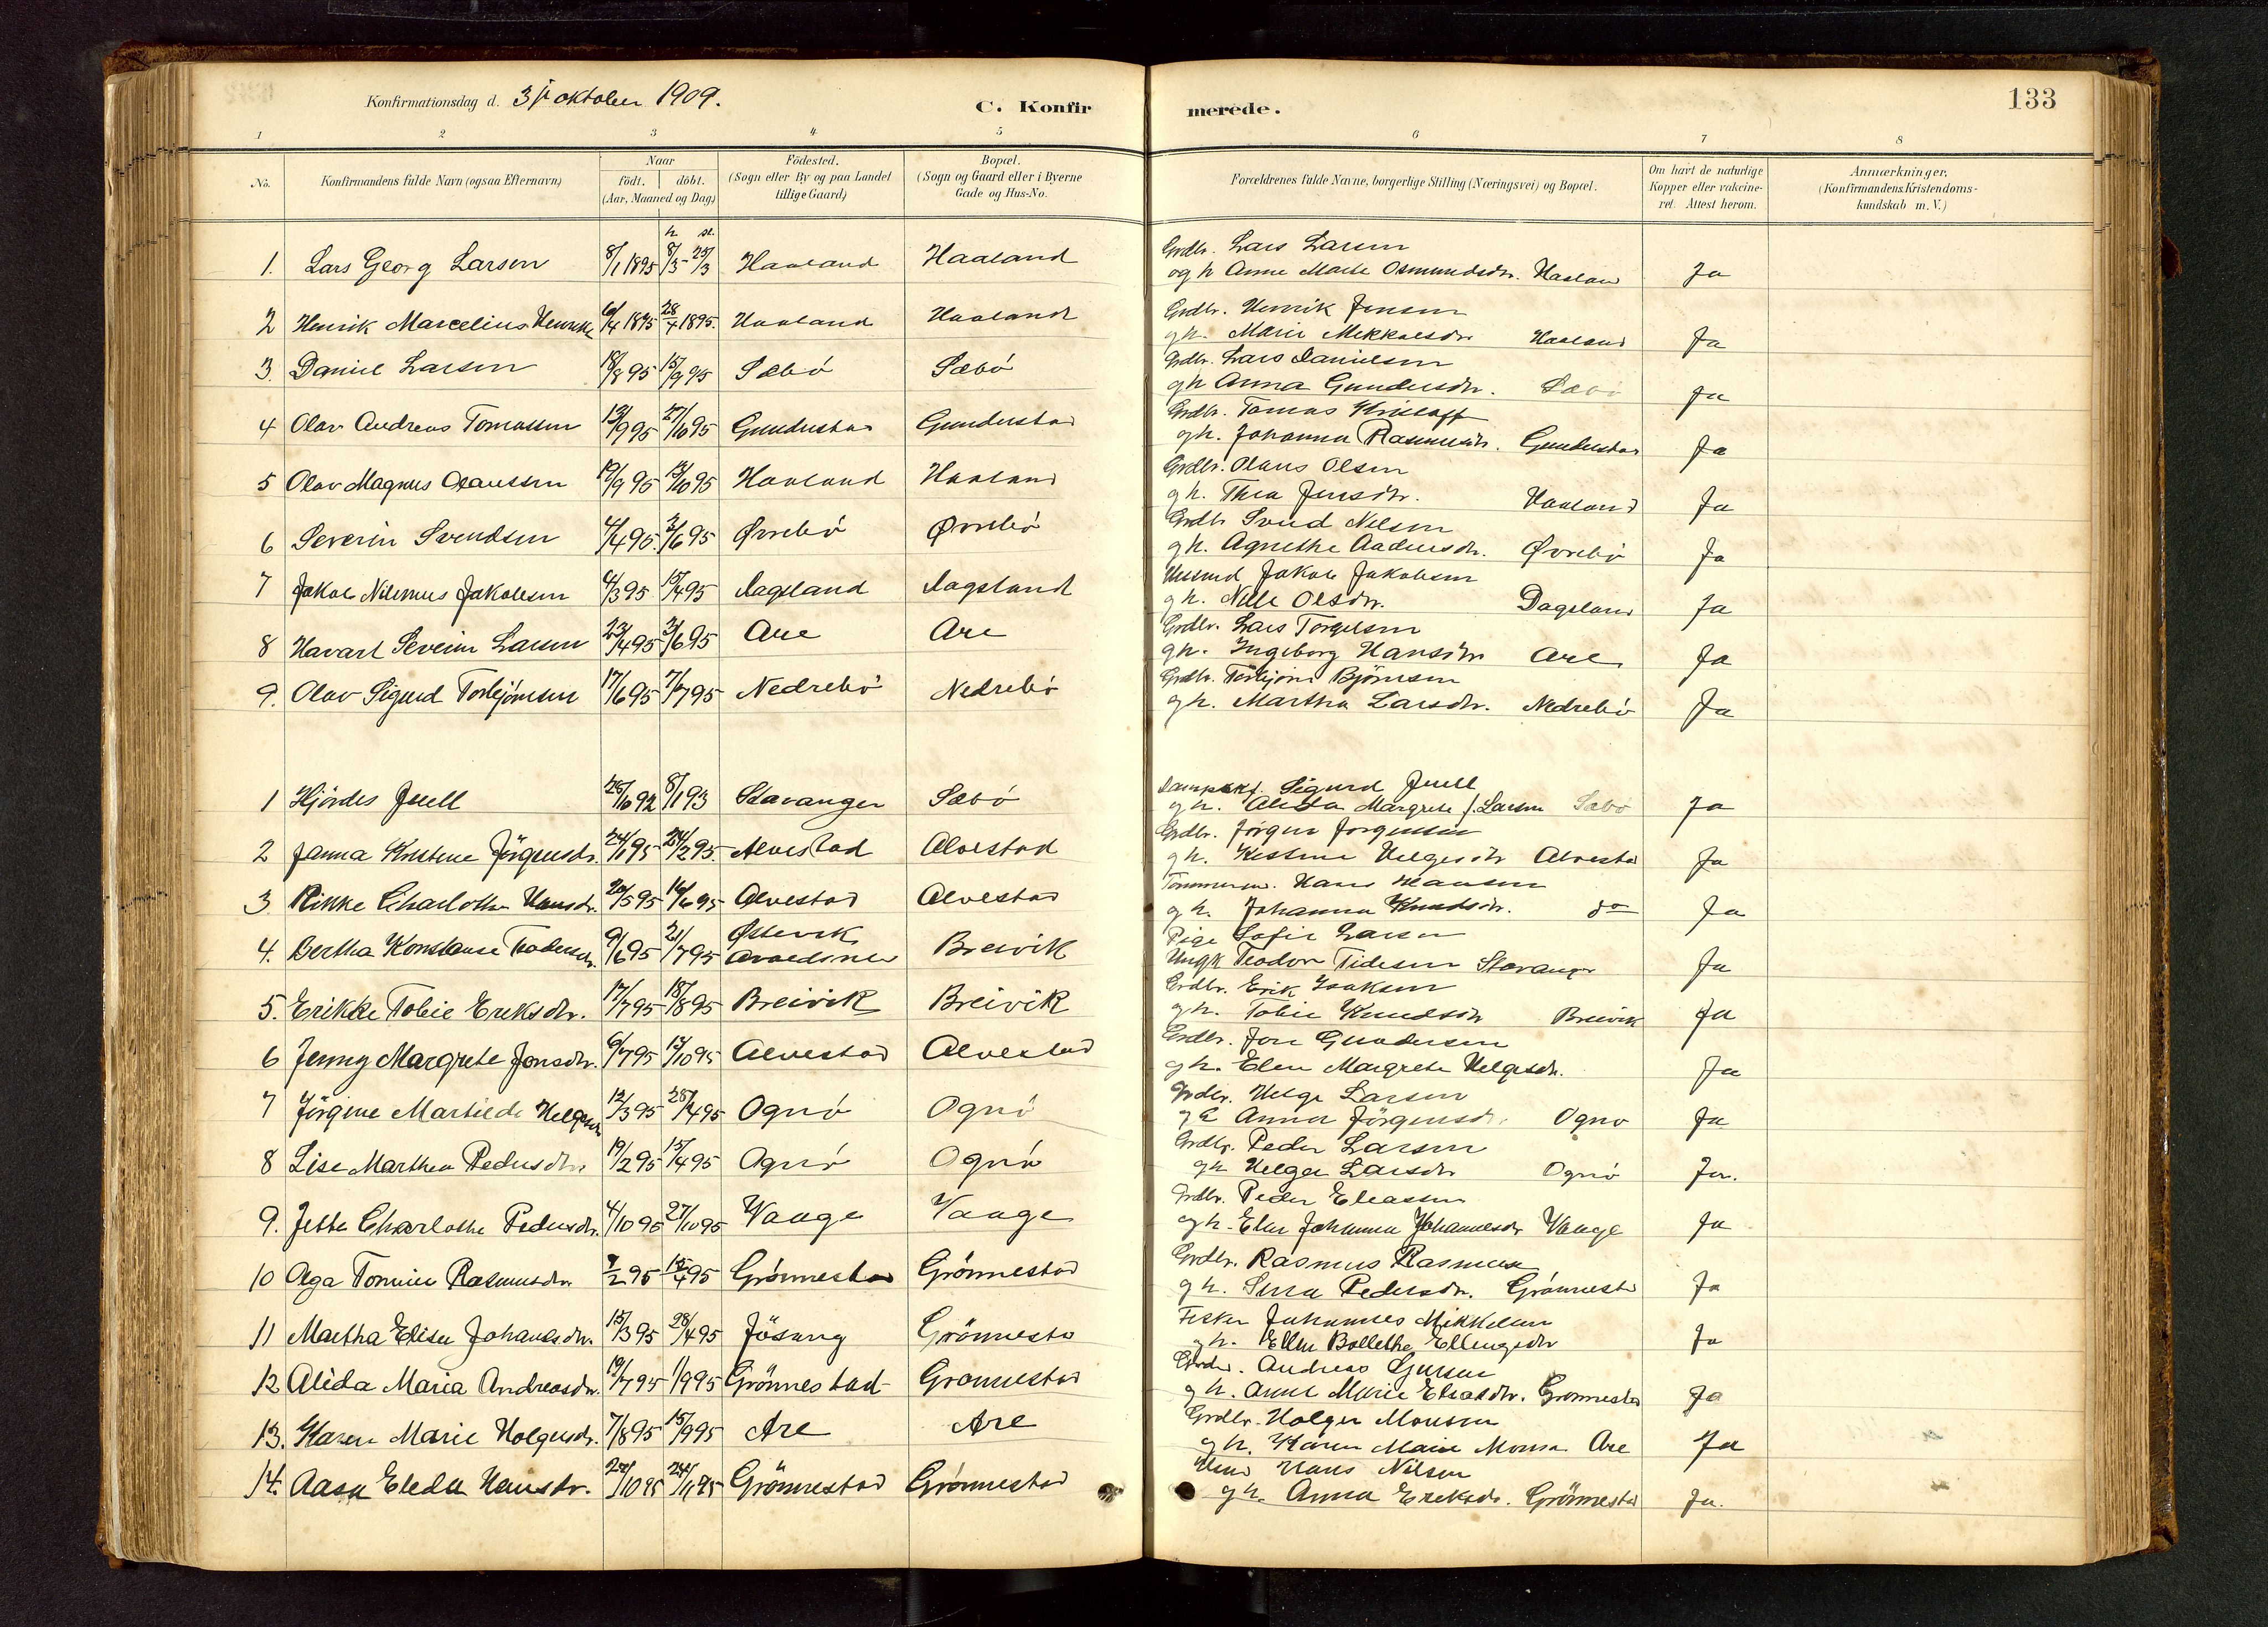 Konfirmationsdag d. 3j oktober 1909.
C. Konfirmerede.
133
1 2 3 4 5 6 7 8
No.
Konfirmandens fulde Navn (ogsaa Efternavn)
Naar
födt. döbt.
(Aar, Maaned og Dag)
Födested.
(Sogn eller By og paa Landet
tillige Gaard)
Bopæl.
(Sogn og Gaard eller i Byerne
Gade og Hus-No.
Forældrenes fulde Navne, borgerlige Stilling (Næringsvei) og Bopæl.
Om havt de naturlige
Kopper eller vakcine-
ret. Attest herom.
Anmærkninger,
(Konfirmandens Kristendoms-
kundskab m. V.)
1. Lars Georg Larsen 8/1 1895 8/3 - 25/3 Haaland Haaland Grdbr. Lars Larsen
og h Anne Marte Osmundsdr. Haaland Ja
2 Henrik Marcelius Henrikss 6/4 1895 28/4 1895. Haaland Haaland Grdbr. Henrik Jensen
g h. Marie Mikkelsdr Haaland Ja
3. Daniel Larsen 18/8 95 15/9 95 Sæbö Sæbö Grdbr. Lars Danielsen
g h Anna Gundersdr. Sæbö Ja
4 Olav Andreas Tomassen 13/9 95 27/10 95 Gunderstad Gunderstad Grdbr. Tomas
g h. Johanna Rasmusdr. Gunderstad Ja
5 Olav Magnus Olaussen 19/9 95 13/10 95 Haaland Haaland Grdbr. Olaus Olsen
g h. Thea Jensdr. Haaland Ja
6 Severin Svendsen 4/4 95. 3/6 95 Øvrebö Øvrebö Grdbr Svend Nilsen
g h. Agnethe Andersdr. Øvrebö Ja
7 Jakob Nilenius Jakobsen 4/3 95 15/4 95 Dagsland Dagsland Huusmd Jakob Jakobsen
g h. Nille Olsdr. Dagsland Ja
8 Havart Severin Larsen 23/4 95 3/6 95 Are Are Grdbr. Lars Torgelsen
g h. Ingeborg Hansdr Are Ja
9. Olav Sigurd Torbjörnsen 17/6 95 7/7 95 Nedrebö Nedrebö Grdbr. Torbjörn Björnsen
g h. Martha Larsdr. Nedrebö Ja
1 Hjördis Juell 26/10 92 8/1 93 Stavanger Sæbö Dampskf. Sigurd Juell
g h. Alida Margrete f. Larsen Sæbö Ja
2 Janna Kristine Jörgensdr. 24/1 95 24/2 95. Alvestad Alvestad Grdbr. Jörgen Jorgensen
g h. Kistine Helgesdr Alvestad Ja
3 Rikke Charlotte Hansdr. 20/5 95 16/6 95 Alvestad Alvestad Tömmerm. Hans Hansen
g h. Johanna Knudsdr. do Ja
4. Bertha Konstanse Teodorsdr. 9/6 95 21/7 95 Østervik
Breivik Pige Sofie Larsen
Ungk Teodor Tidesen Stavanger Ja
5. Erikke Tobie Eriksdr. 17/7 95 18/8 95 Breivik Breivik Grdbr. Erik Isaksen
g h. Tobie Knudsdr Breivik Ja
6 Jenny Margrete Jonsdr. 6/7 95 13/10 95 Alvestad Alvestad Grdbr. Jon Gundersen
g h. Elen Margrete Helgesdr. Ja
7 Jörgine Martilde Helgesdr 12/3 95 28/4 95 Ognö Ognö Grdbr. Helge Larsen
g h Anna Jörgensdr. Ogno Ja
8 Lise Marthea Pedersdr. 19/2 95 15/4 95 Ognö Ognö Grdbr. Peder Larsen
g h Helga Larsdr Ognö Ja.
9. Jette Charlotte Pedersdr. 4/10 95 27/10 95 Vaage Vaage Grdbr. Peder Eliassen
g h. Elen Johanna Johannesdr Vaage Ja
10 Olga Tomine Rasmusdr. 7/2 95 15/4 95 Grönnestad Grönnestad Grdbr. Rasmus Rasmusen
g h. Sena Pedersdr. Grönnesta Ja
11 Martha Elise Johansdr. 15/3 95 28/4 95 Jösang Grönnesta Fisker Johannes Mikkelsen
g h. Ellen Bollethe Ellingsdr Ja
12 Alida Maria Andreasdr. 19/7 95 1/9 95 Grönnestad Gronnestad Grdbr. Andreas
g h. Anne Marie Eliasdr. Gronnestad Ja
13. Karen Marie Holgersdr. 7/8 95 15/9 95 Are Are Grdbr. Holger Monsen
g h. Karen Marie Monsdr Are Ja
14. Aasa Eleda Hansdr. 24/10 95 24/11 95 Grönnestad Grönnestad Hans Nilsen
g h. Anna Eriksdr. Grönnestad Ja.